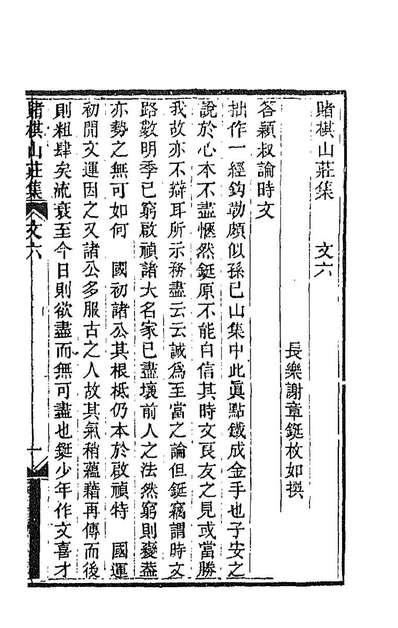 賭棋山莊集　文六
長樂謝章鋌枚如撰
答穎叔論時文
拙作一經鈎勒頗似孫已山集中此眞點鐵成金手也子安之
說於心本不盡愜然鋌原不能自信其時文良友之見或當勝
我故亦不辯耳所示務盡云云誠爲至當之論但鋌竊謂時文
路數明季已窮啟禎諸大名家已盡壞前人之法然窮則變葢
亦勢之無可如何　國初諸公其根柢仍本於啟禎特　國運
初開文運因之又諸公多服古之人故其氣稍蘊藉再傳而後
則粗肆矣流衰至今日則欲盡而無可盡也鋌少年作文喜才
賭棋山莊集　文六　一